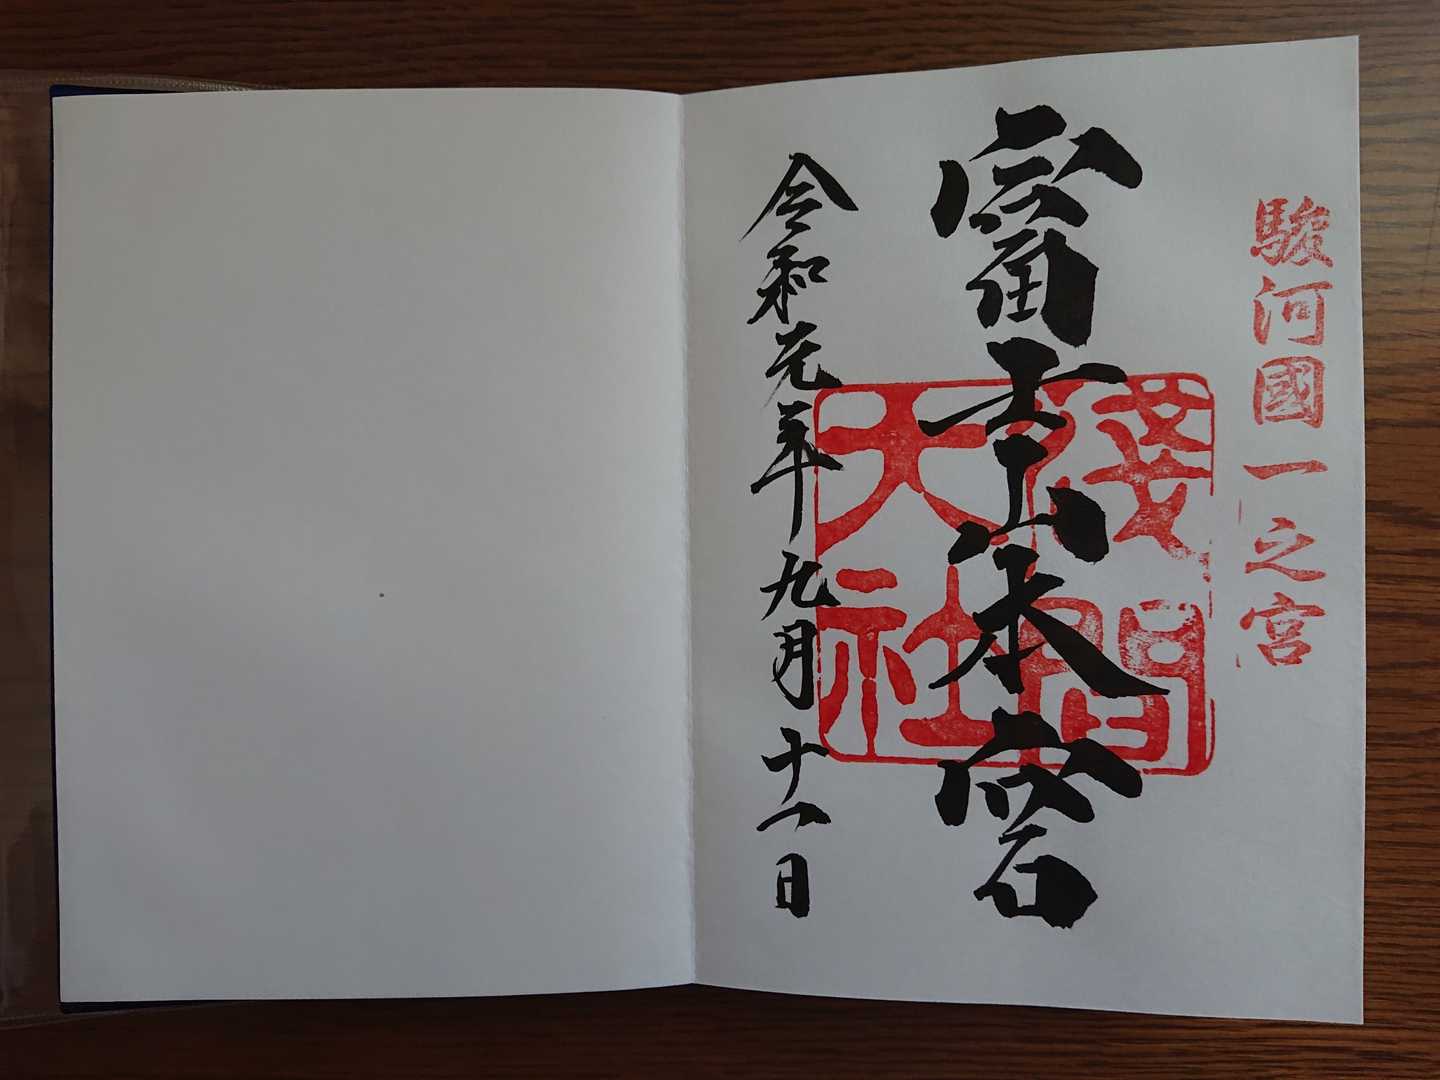 駿河國一之宮
富士山本宮
淺間大社
令和元年九月十一日